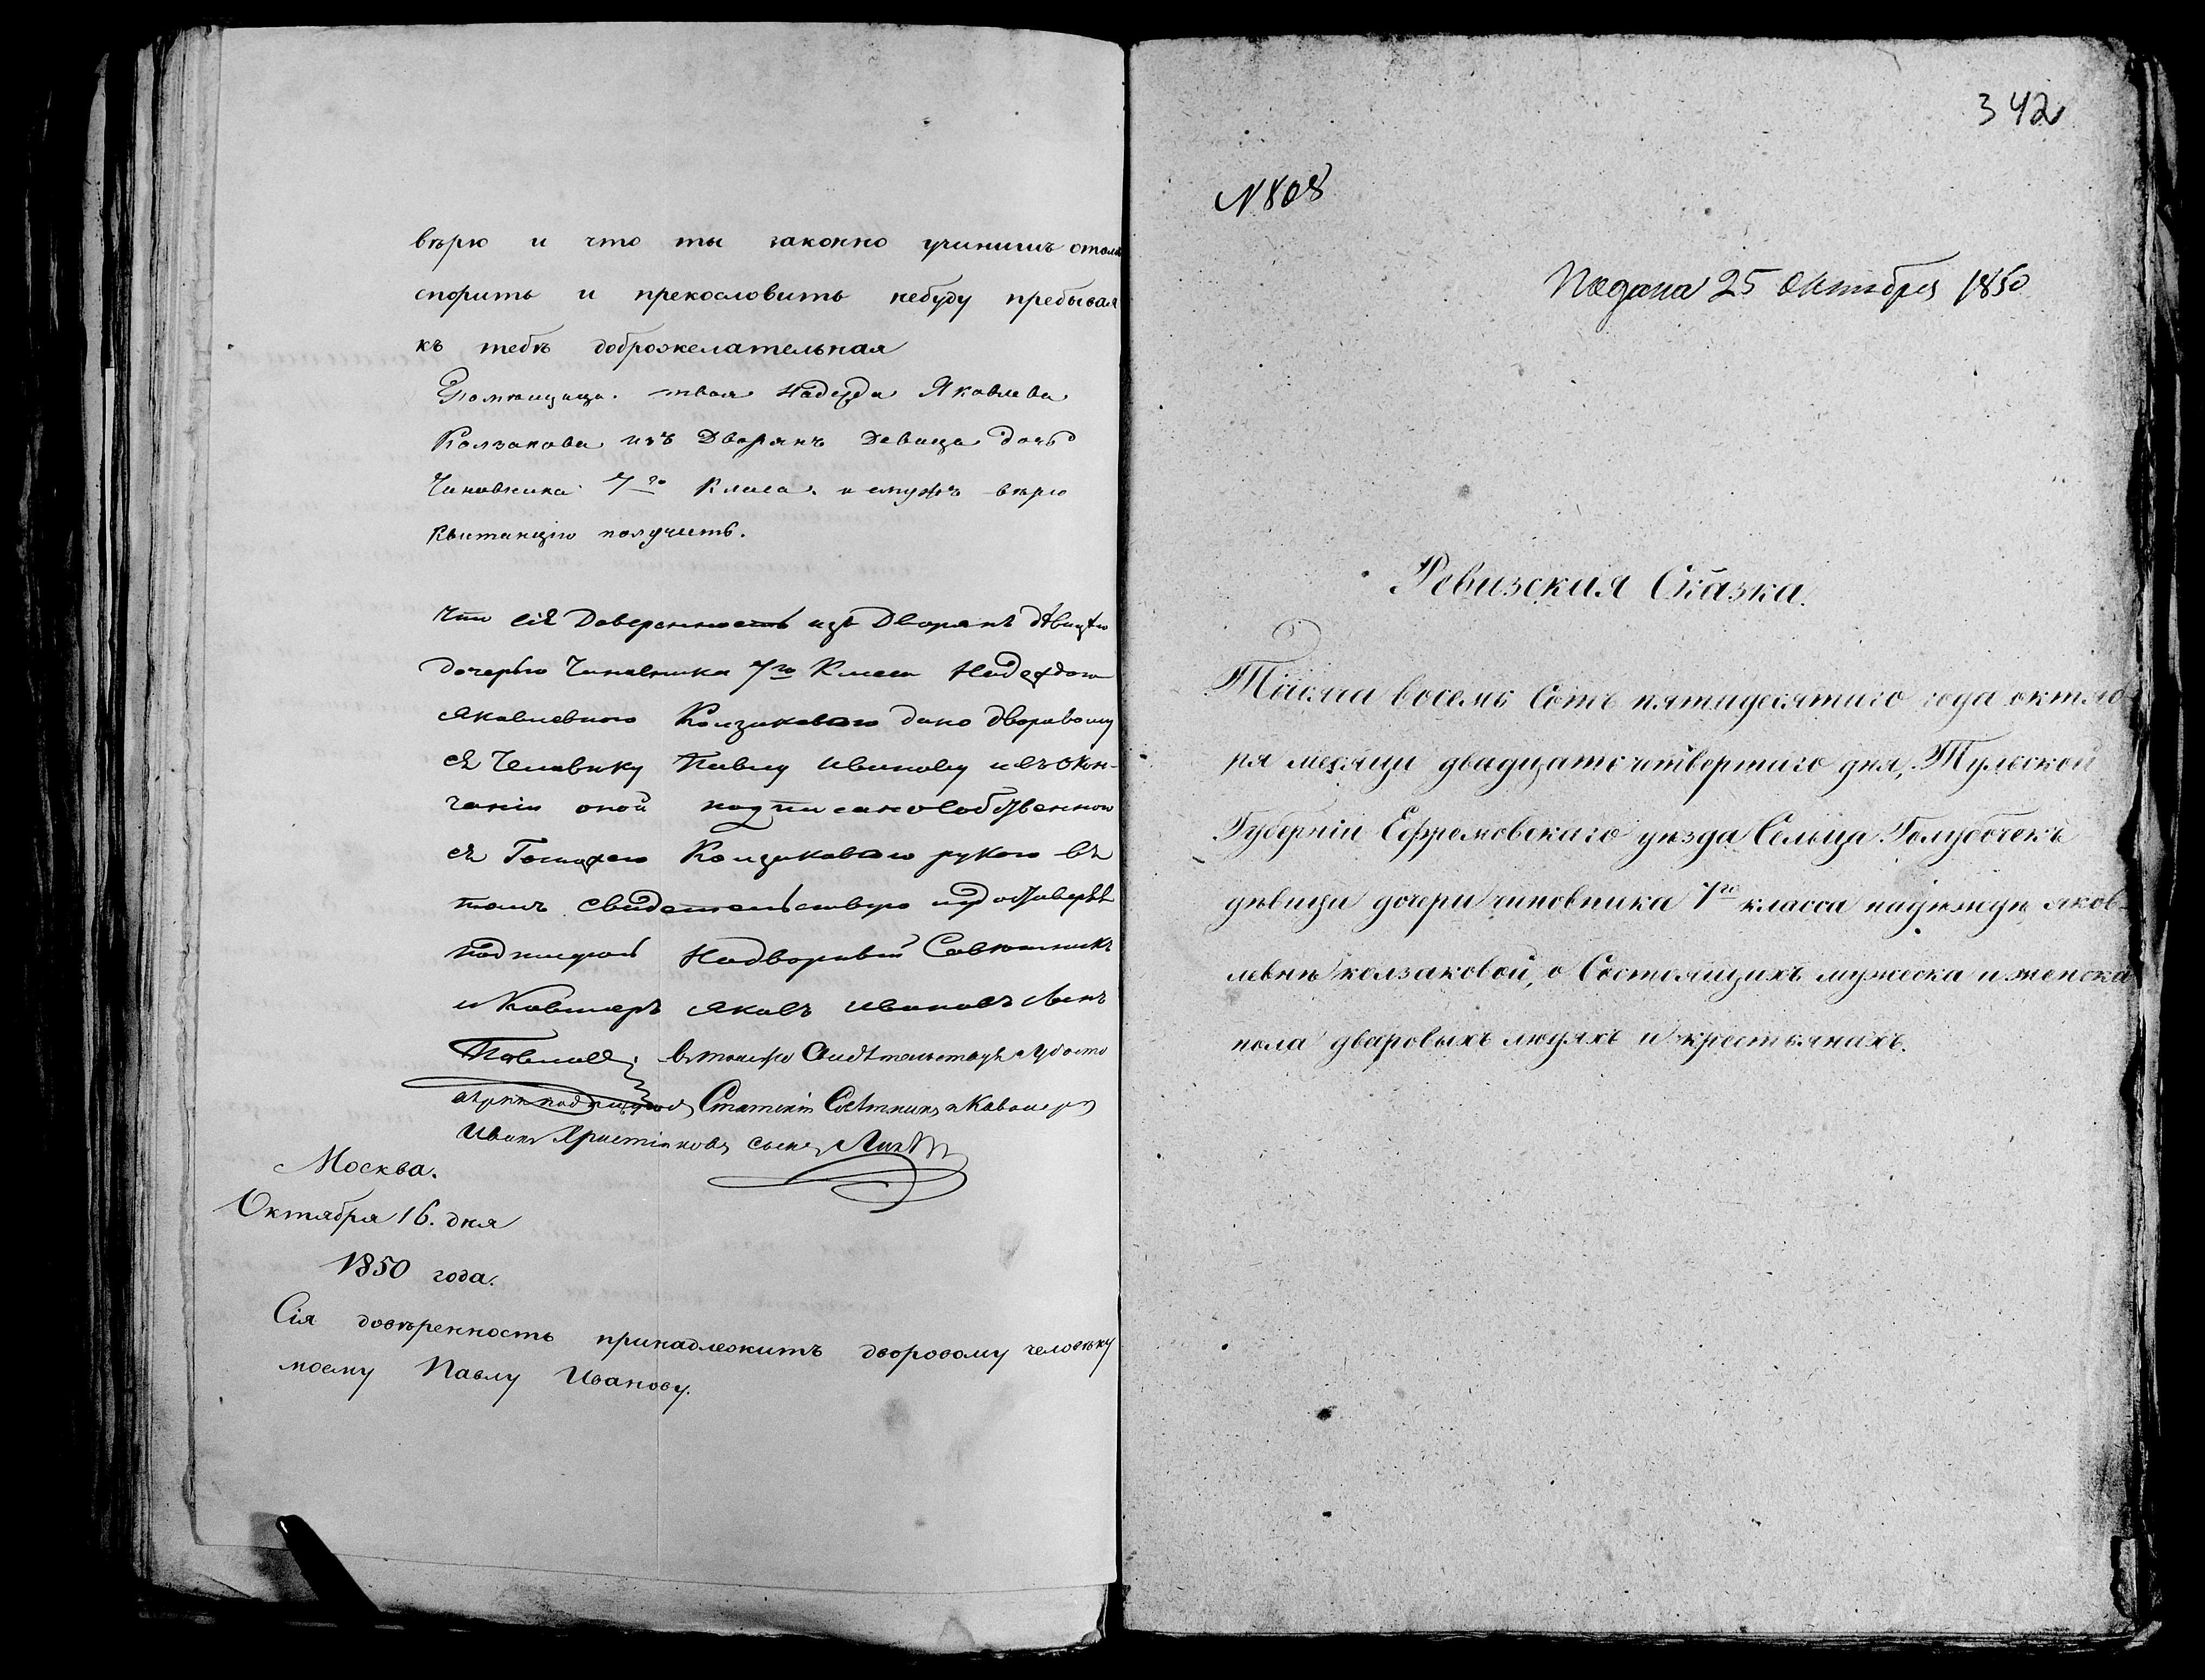 вѣрю и что ты законно учинишъ о томъ
спорить и прекословить небуду пребывая
къ тебѣ доброжелательная
Помѣщица. твоя Надежда Яковлева
Колзакова изъ Дворянъ Девица дочь
Чиновника 7го Класа. и емужъ вѣрю
Квитанцію получить.
Что сія Доверенность изъ Дворянъ дѣвицею
дочерью Чиновника 7го Класа Надеждою
Яковлевною Колзаковою дана дворовому
ея Человѣку Павлу Иванову и въ окон-
чаніи оной подписано собственною
ея Госпожею Колзаковою рукою въ
томъ свидетельствую и удостоверяя
подписуюсь Надворный Совѣтникъ
и Кавалеръ Яковъ Ивановъ сынъ
Павловъ; въ томъ же Свидѣтельствуя и удосто
вѣряя подписуюсь Статскій Совѣтникъ и Кавалеръ
Иванъ Христіановъ сынъ
Москва.
Октября 16. дня
1850 года.
Сія довѣренность принадлежитъ дворовому человѣку
моему Павлу Иванову.
342
N 808
Подана 25 Октября 1850
Ревизская Сказка.
Тысяча восемь Сотъ пятидесятаго года октяб
ря месяца двадцать четвертаго дня, Тульской
Губерніи Ефремовскаго уѣзда Сельца Голубочекъ
дѣвицы дочери чиновника 7го класса надѣжды яков-
левны колзаковой, о Состоящихъ мужеска и женска
пола дваровыхъ людяхъ и крестьянахъ.